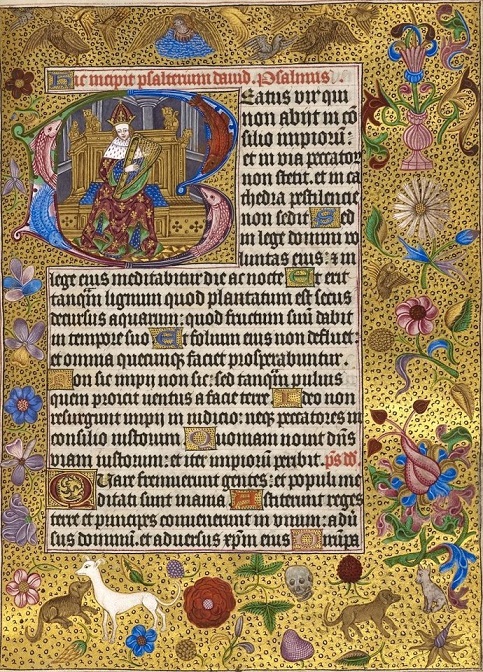 Hic incipit psalterium dauid. Psalmus
Beatus vir qui
non abijt in cō
silio impiorū:
et in via peccator
non stetit. et in ca
thedra pestilencie
non sedit Sed
in lege domini vo
luntas eius: ⁊ in
lege eius meditabitur die ac nocte Et erit
tanqm̄ lignum quod plantatum est secus
decursus aquarum: quod fructum suū dabit
in tempore suo Et folium eius non defluet:
et omnia quecunqꝫ faciet prosperabuntur.
Non sic impij non sic: sed tanqm̄ puluis
quem proicit uentus a facie terre Ideo non
resurgunt impij in iudicio: neqꝫ peccatores in
consilio iustorum Quoniam nouit dn̄s
viam iustorum: et iter impiorū peribit. ps̄ dd̄.
Quare fremuerunt gentes: et populi me
ditati sunt inania Astiterunt reges
terre et principes conuenerunt in vnum: adu
sus dominū. et aduersus xp̄m eius Dirūpa